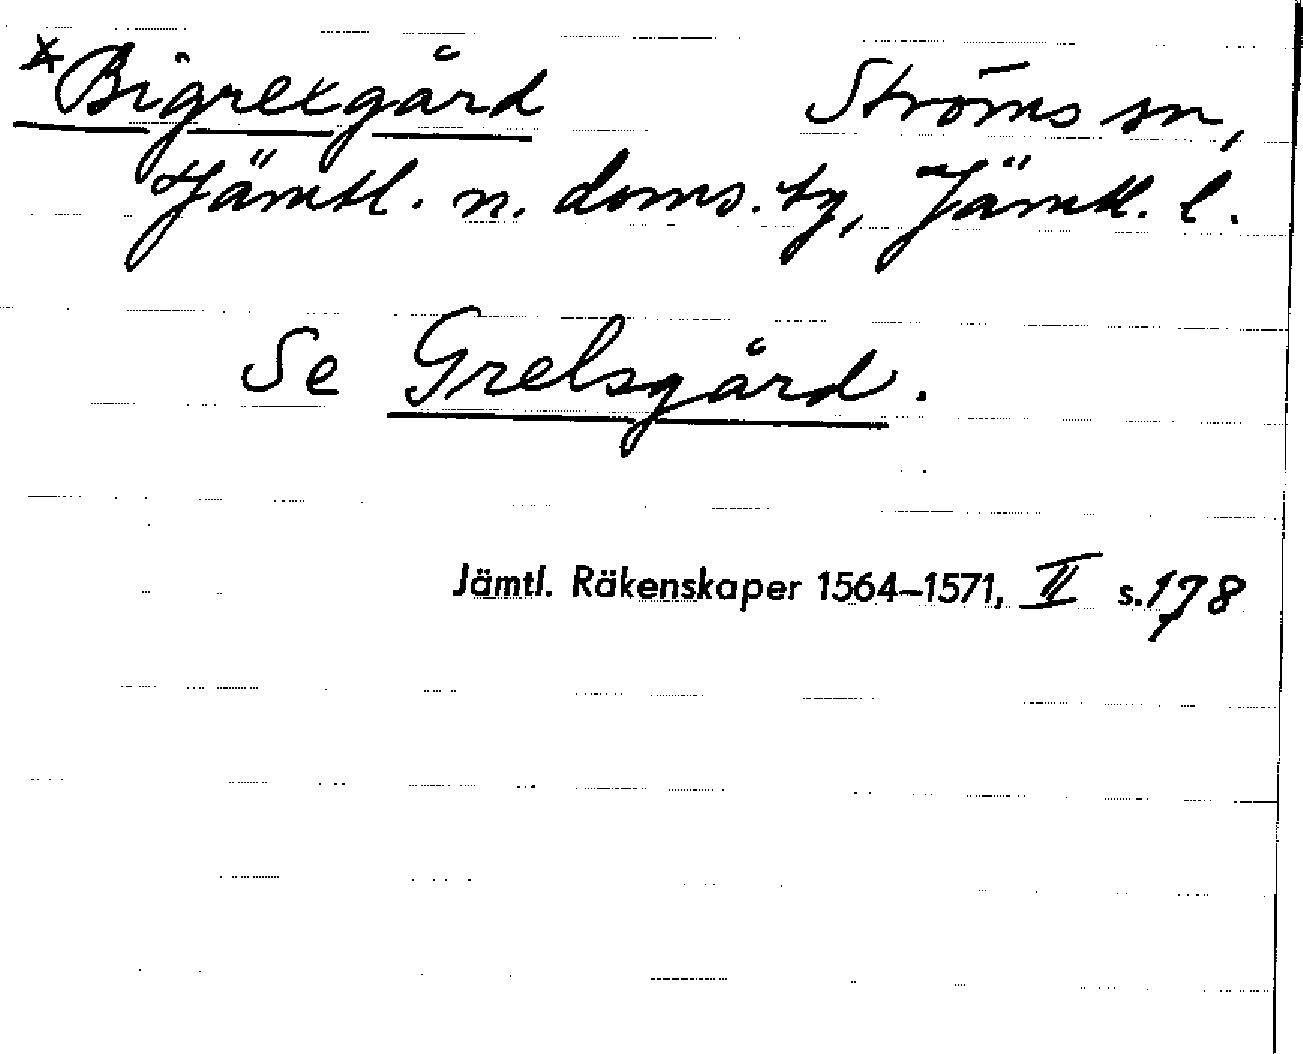 *Bigrexgård Ströms sn,
Jämtl. n. doms. tg, Jämtl. l.
Se Grelsgård.
Jämtl. Räkenskaper 1564–1571, II s. 178